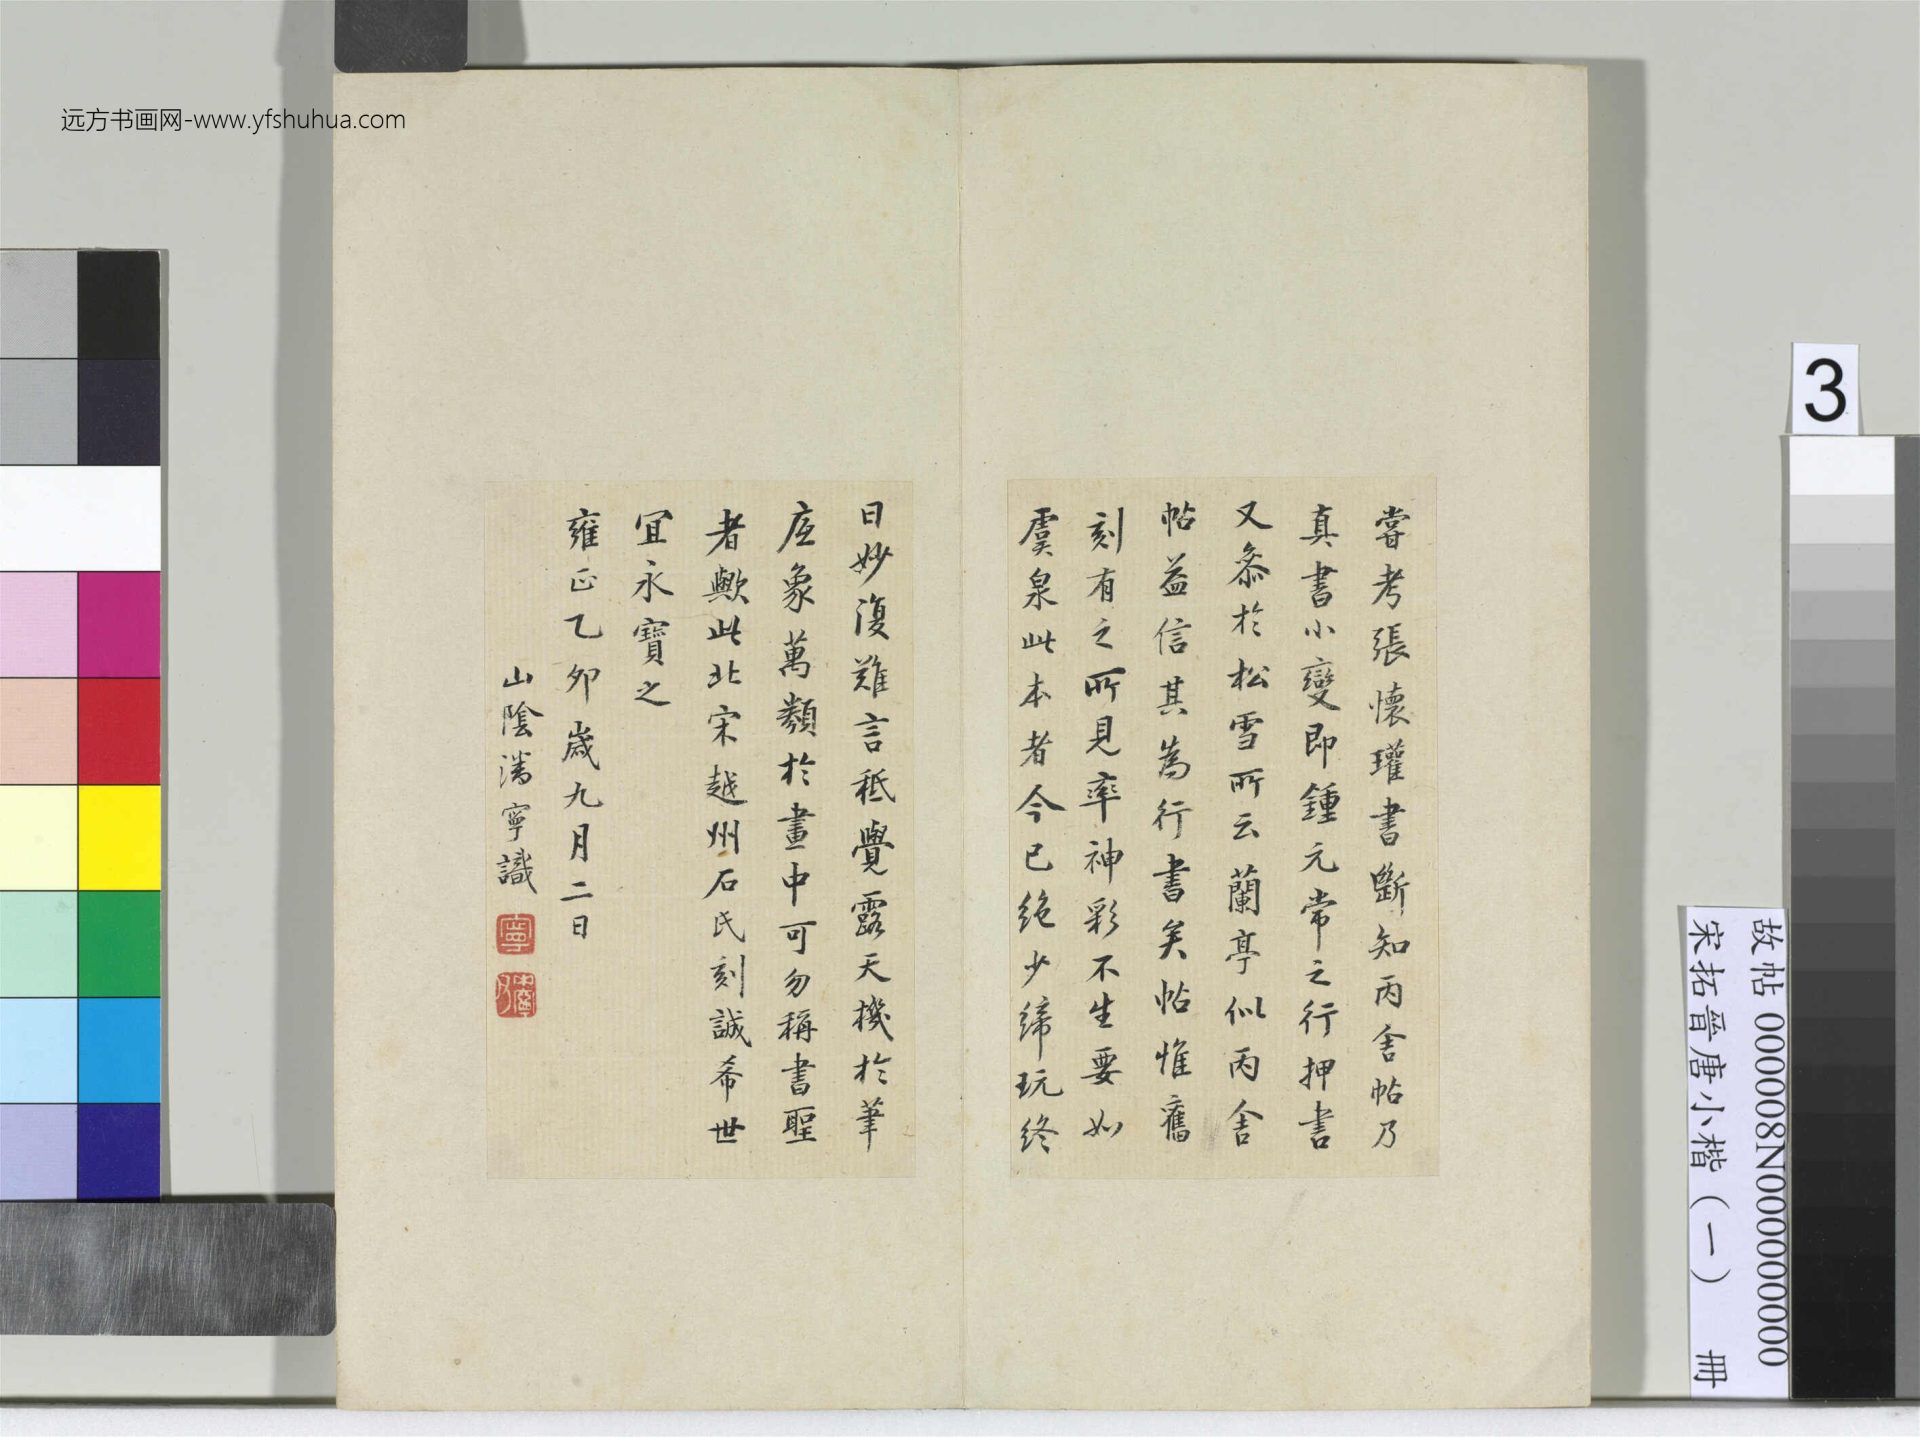 远方书画网-www.yfshuhua.com
嘗考張懷瓘書斷知丙舍帖乃
真書小變即鍾元常之行押書
又叅於松雪所云蘭亭似丙舍
帖益信其為行書矣帖惟舊
刻有之所見率神彩不生要如
虞泉此本者今已絶少締玩终
日妙復難言秖覺露天機於筆
底象萬類於畫中可勿稱書聖
者歟此北宋越州石氏刻誠希世
宜永寶之
雍正乙夘歲九月二日
山陰潘寧識
寧
3
故帖 000008N000000000
宋拓晋唐小楷（一） 冊